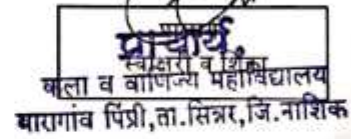 प्राचार्य
स्वाक्षरी व शिक्का
कला व वाणिज्य महाविद्यालय
बारागांव पिंप्री,ता.सिन्नर,जि.नाशिक